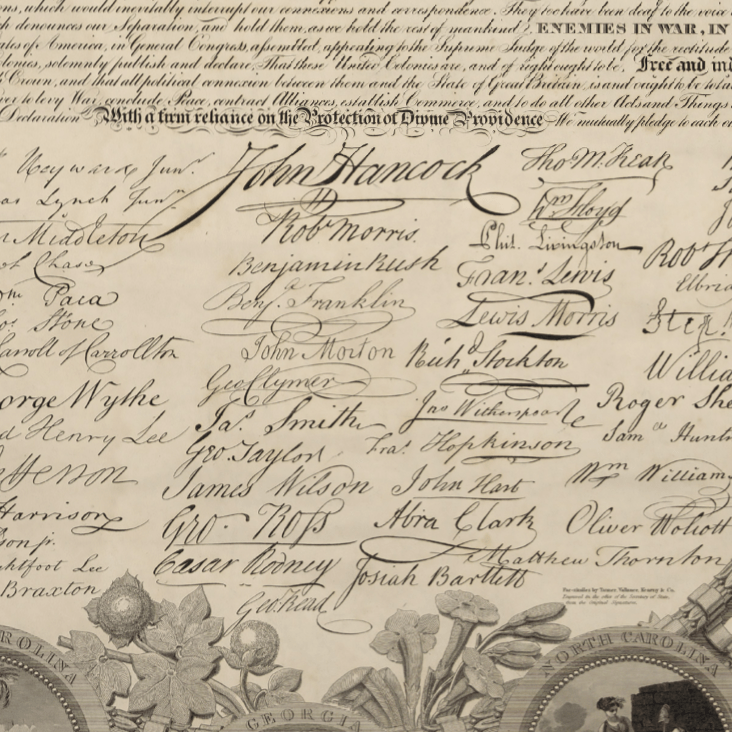 ns, which would inevitably interrupt our connexions and correspondence. They too have been deaf to the voice o
ch denounces our Separation, and hold them, as we hold the rest of mankind, ENEMIES IN WAR, IN
ates of America, in General Congress, assembled, appealing to the Supreme Judge of the world for the rectitude
lonies, solemnly publish and declare, That these United Colonies are, and of right ought to be, Free and ind
Crown, and that all political connexion between them and the State of Great Britain, is and ought to be total
wer to levy War, conclude Peace, contract Alliances, establish Commerce, and to do all other Acts and Things
Declaration With a firm reliance on the Protection of Divine Providence We mutually pledge to each o
Heyward Junr.
Lynch Junr.
Middleton
Chase
Paca
Stone
Carroll of Carrollton
orge Wythe
d Henry Lee
efferson
Harrison
son jr.
htfoot Lee
Braxton
John Hancock
H
Robt Morris.
Benjamin Rush
Benj. Franklin
John Morton
Geo Clymer
Jas. Smith
Geo. Taylor
James Wilson
Geo. Ross
Caesar Rodney
Geo Read
Tho M. Kean
Wm Floyd
Phil. Livingston
Frans. Lewis
Lewis Morris
Richd Stockton
Jno Witherspoon
Fras. Hopkinson
John Hart
Abra Clark
Josiah Bartlett
Robt
Elbri
Step.
Willia
Roger She
Saml Hunt
Wm Williams
Oliver Wolcott
Matthew Thornton
AROLINA
GEORGIA
NORTH CAROLINA